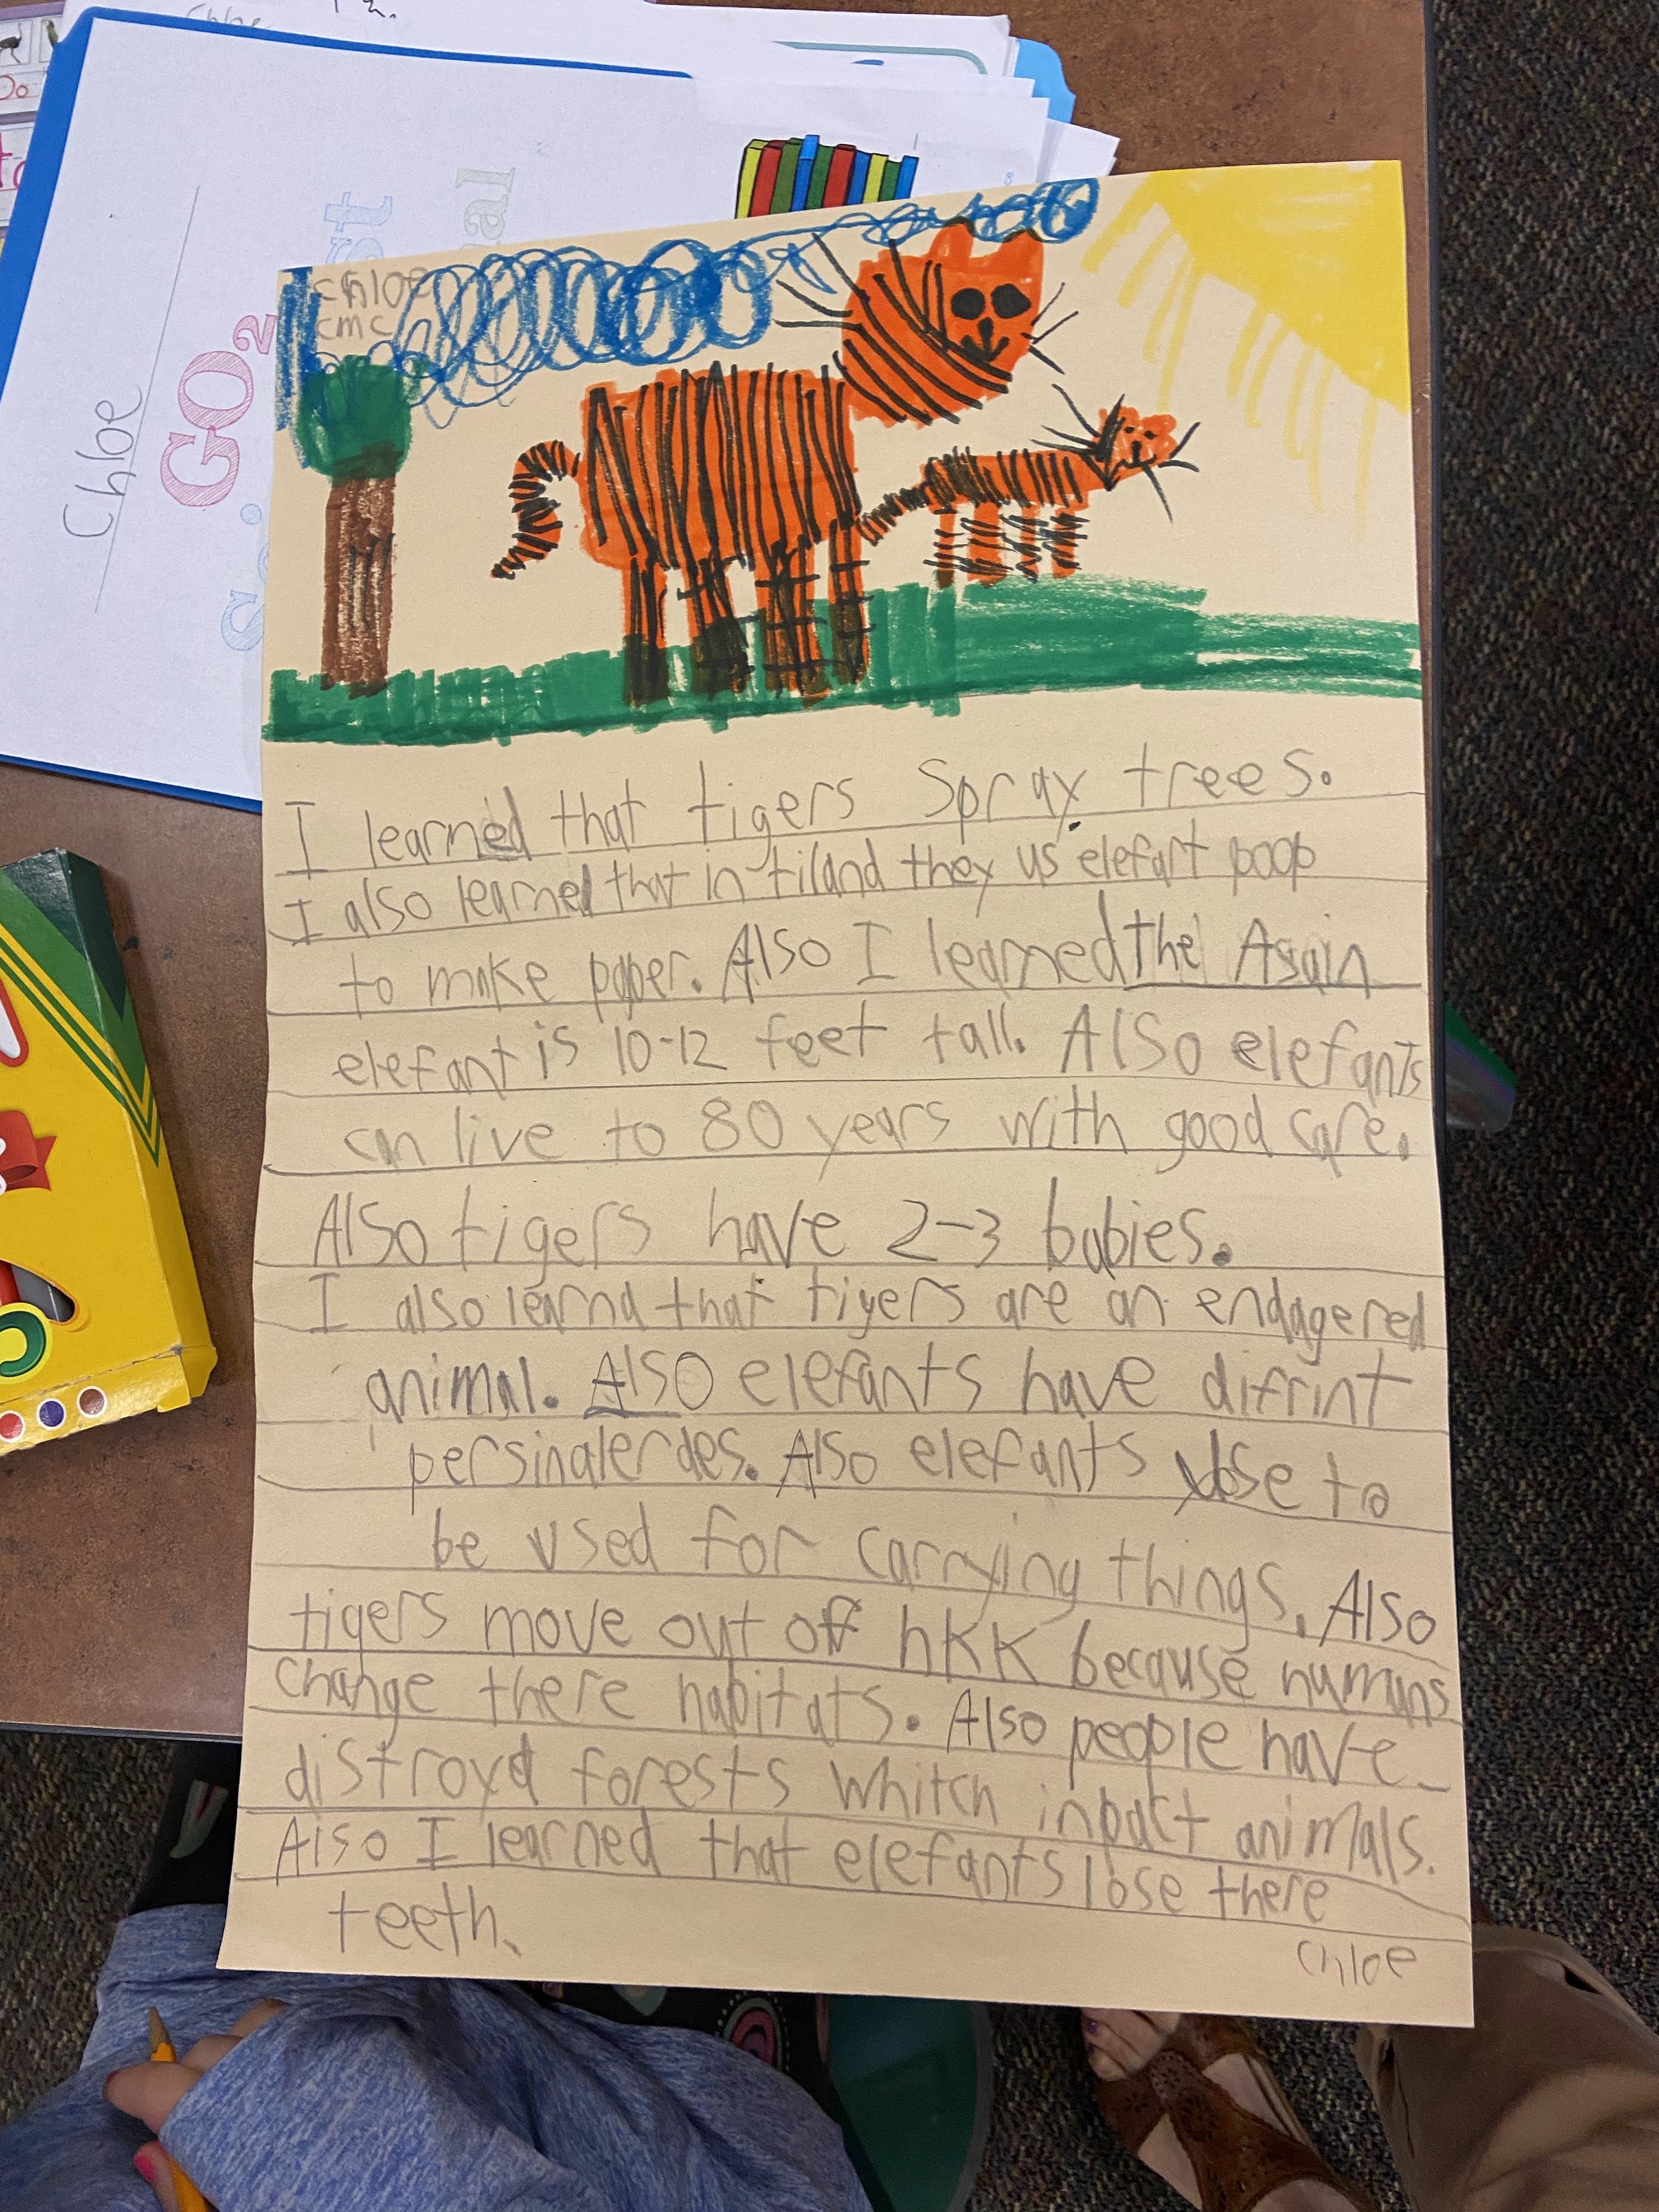 Chloe
Chloe
GO2
chloe
cmc
I learned that tigers spray trees.
I also learned that in tiland they us elefant poop
to make paper. Also I learned the Asain
elefant is 10-12 feet tall. Also elefants
can live to 80 years with good care.
Also tigers have 2-3 babies.
I also learnd that tigers are an endagered
animal. Also elefants have difrint
persinalerdes. Also elefants use to
be used for carrying things. Also
tigers move out off hKK because humans
change there habitats. Also people have
distroyd forests whitch inpact animals.
Also I learned that elefants lose there
teeth.
Chloe